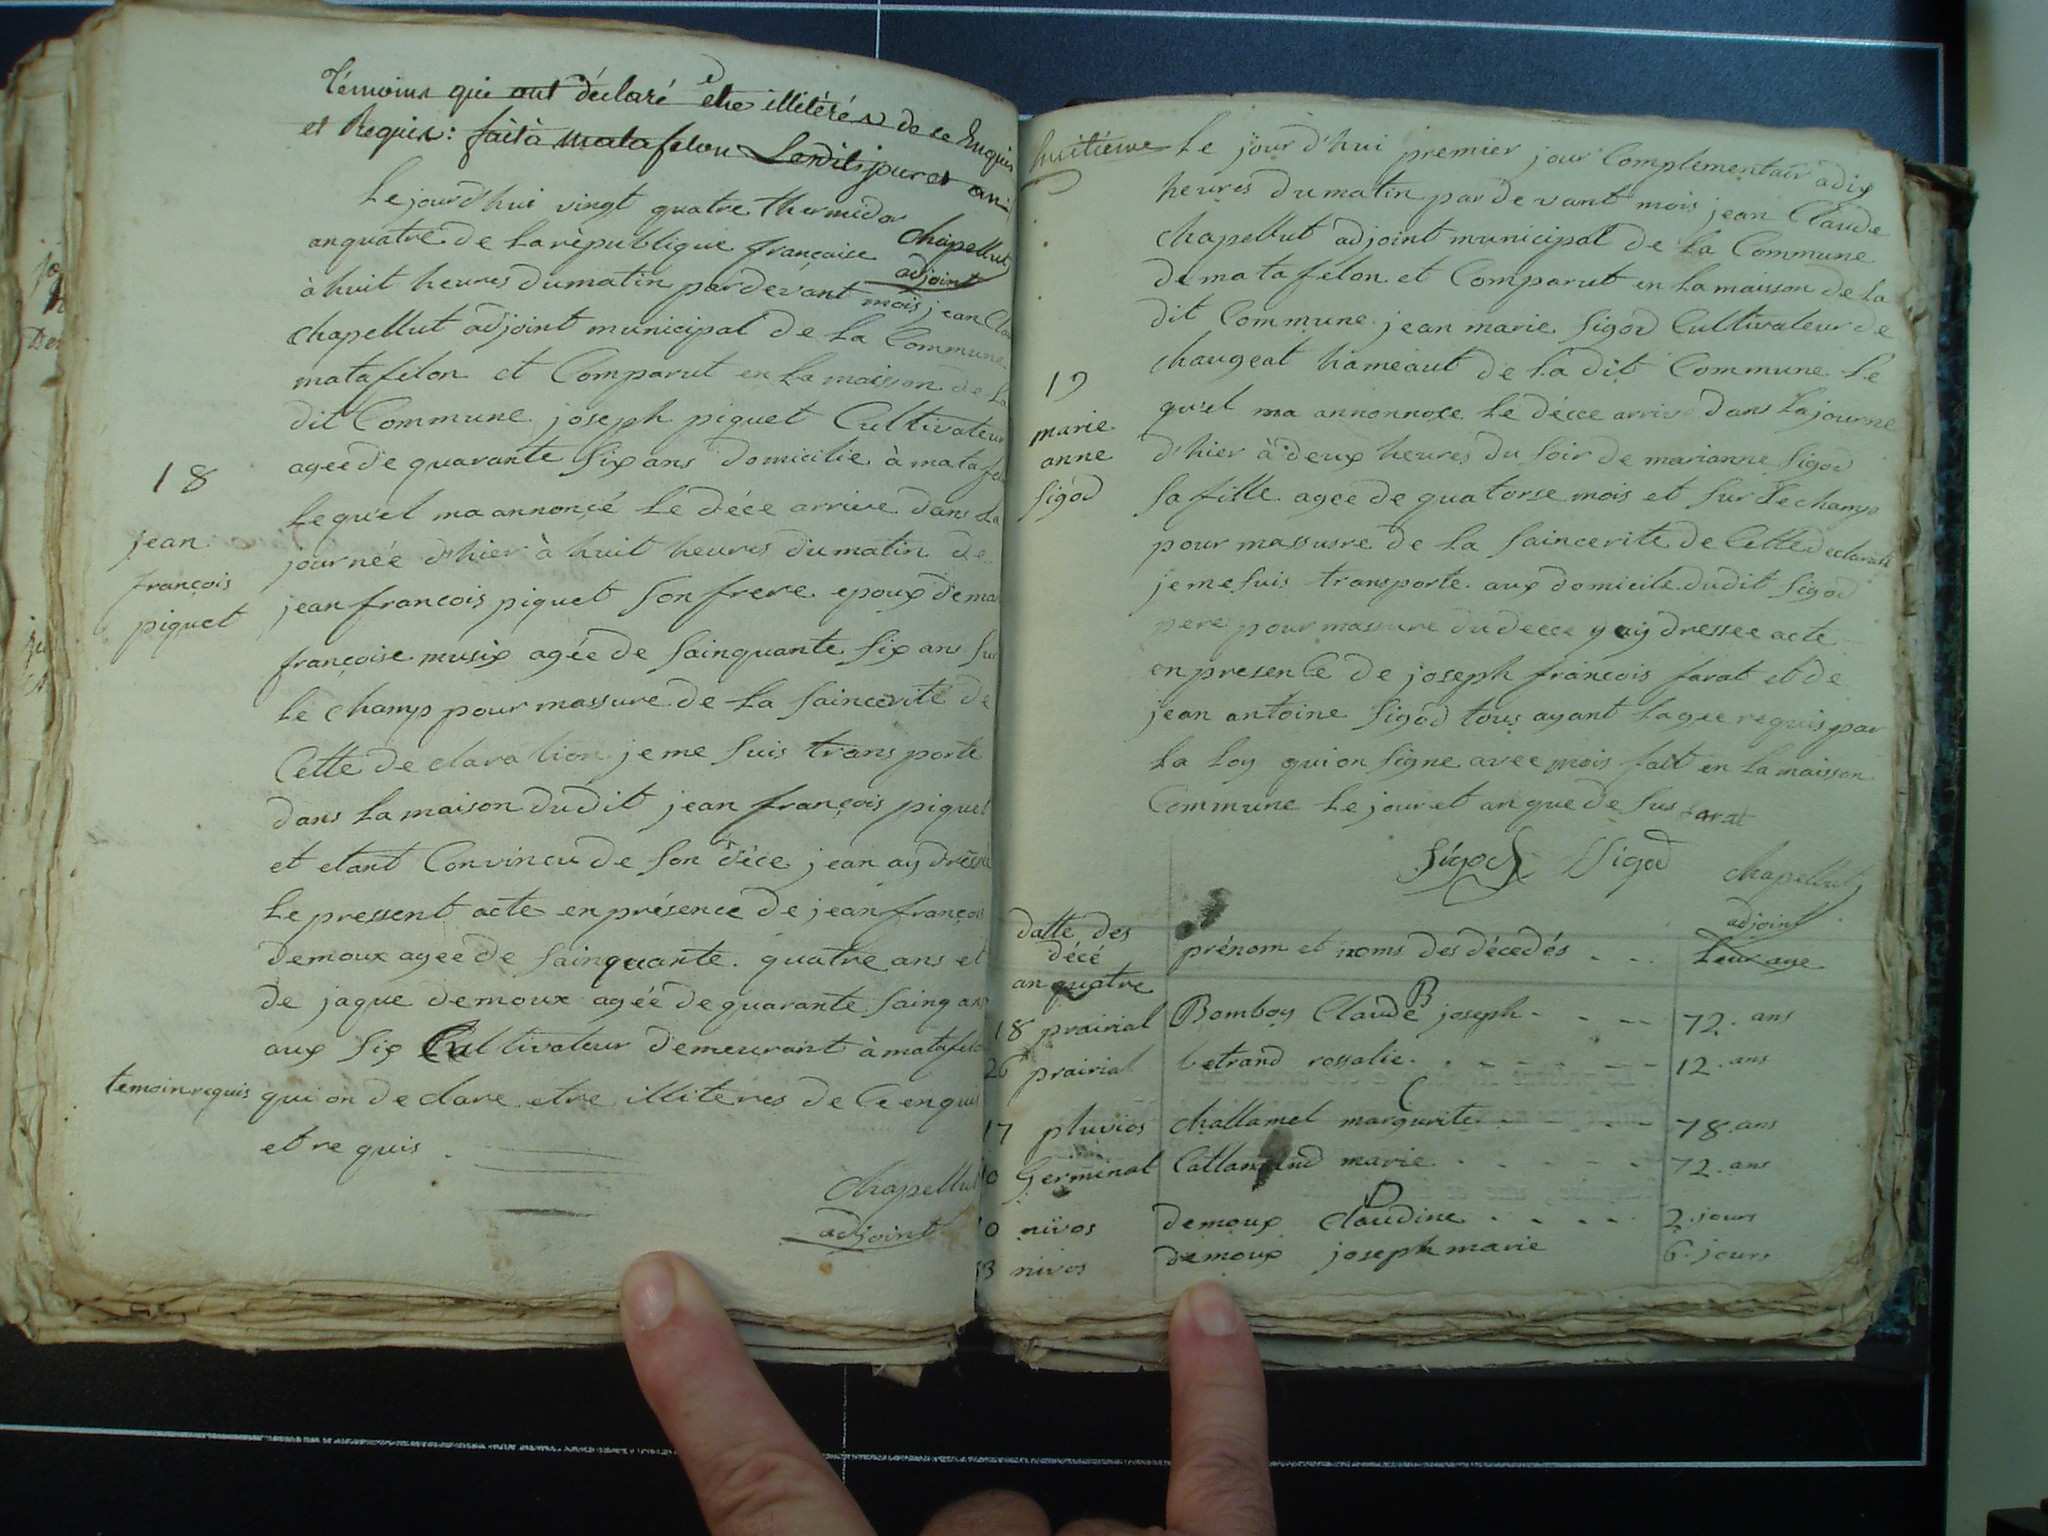 témoins qui ont déclaré etre illitérés de ce Enquis
et Requis: fait à matafelon Lesdits jour et an
Le jourd'hui vingt quatre thermidor
an quatre de La république française
chapellut
adjoint
à huit heures du matin pardevant mois jean
chapellut adjoint municipal de La Commune
matafelon et Comparut en La maison de La
dit Commune joseph piquet Cultivateur
agee de quarante six ans domicilie à matafe
18
jean
françois
piquet
Lequel ma annonçé Le déce arrive dans La
journée d'hier à huit heures du matin de
jean françois piquet son frere epoux de ma
françoise musix agée de sainquante six ans sur
Le champ pour massure de La saincerite de
Cette declaration je me suis transporte
dans La maison dudit jean françois piquet
et etant Convincu de son déce jean ay dresse
Le pressent acte en présence de jean françois
demoux agee de sainquante quatre ans et
de jaque demoux agée de quarante sainq ans
aux six Cultivateur demeurant à matafelo
temoin requis
qui on declare etre illiteres de Ce enquis
et requis
chapellut
adjoint
huitième
Le jourd'hui premier jour Complementair a dix
heures du matin pardevant mois jean Claude
chapellut adjoint municipal de La Commune
de matafelon et Comparut en La maisson de La
dit Commune jean marie sigod Cultivateur de
chaugeat hameaut de La dit Commune Le
19
marie
anne
sigod
quel ma annonnoxe Le décce arrive dans La journe
d'hier à deux heures du soir de marianne sigod
sa fille agee de quatorse mois et sur Le champ
pour massusre de La saincerite de Cette declarati
je me suis transporte aux domicile dudit sigod
pere pour massure du decce y ay dressee acte
en presence de joseph francois farat et de
jean antoine sigod tous ayant Lague requis par
La Loy qui on signe avec mois fait en La maisson
Commune Le jour et an que de sus farat
sigod sigod chapellut
adjoint
datte des
décé
an quatre
prénom et noms des décedés
Leur age
B
18 prairial Bomboy Claude joseph 72 ans
26 prairial betrand rossalie 12 ans
C
17 pluvios challamel margurite 78 ans
germinal marie 72 ans
D
0 nivos demoux claudine 2 jours
nivos demoux joseph marie 6 jours